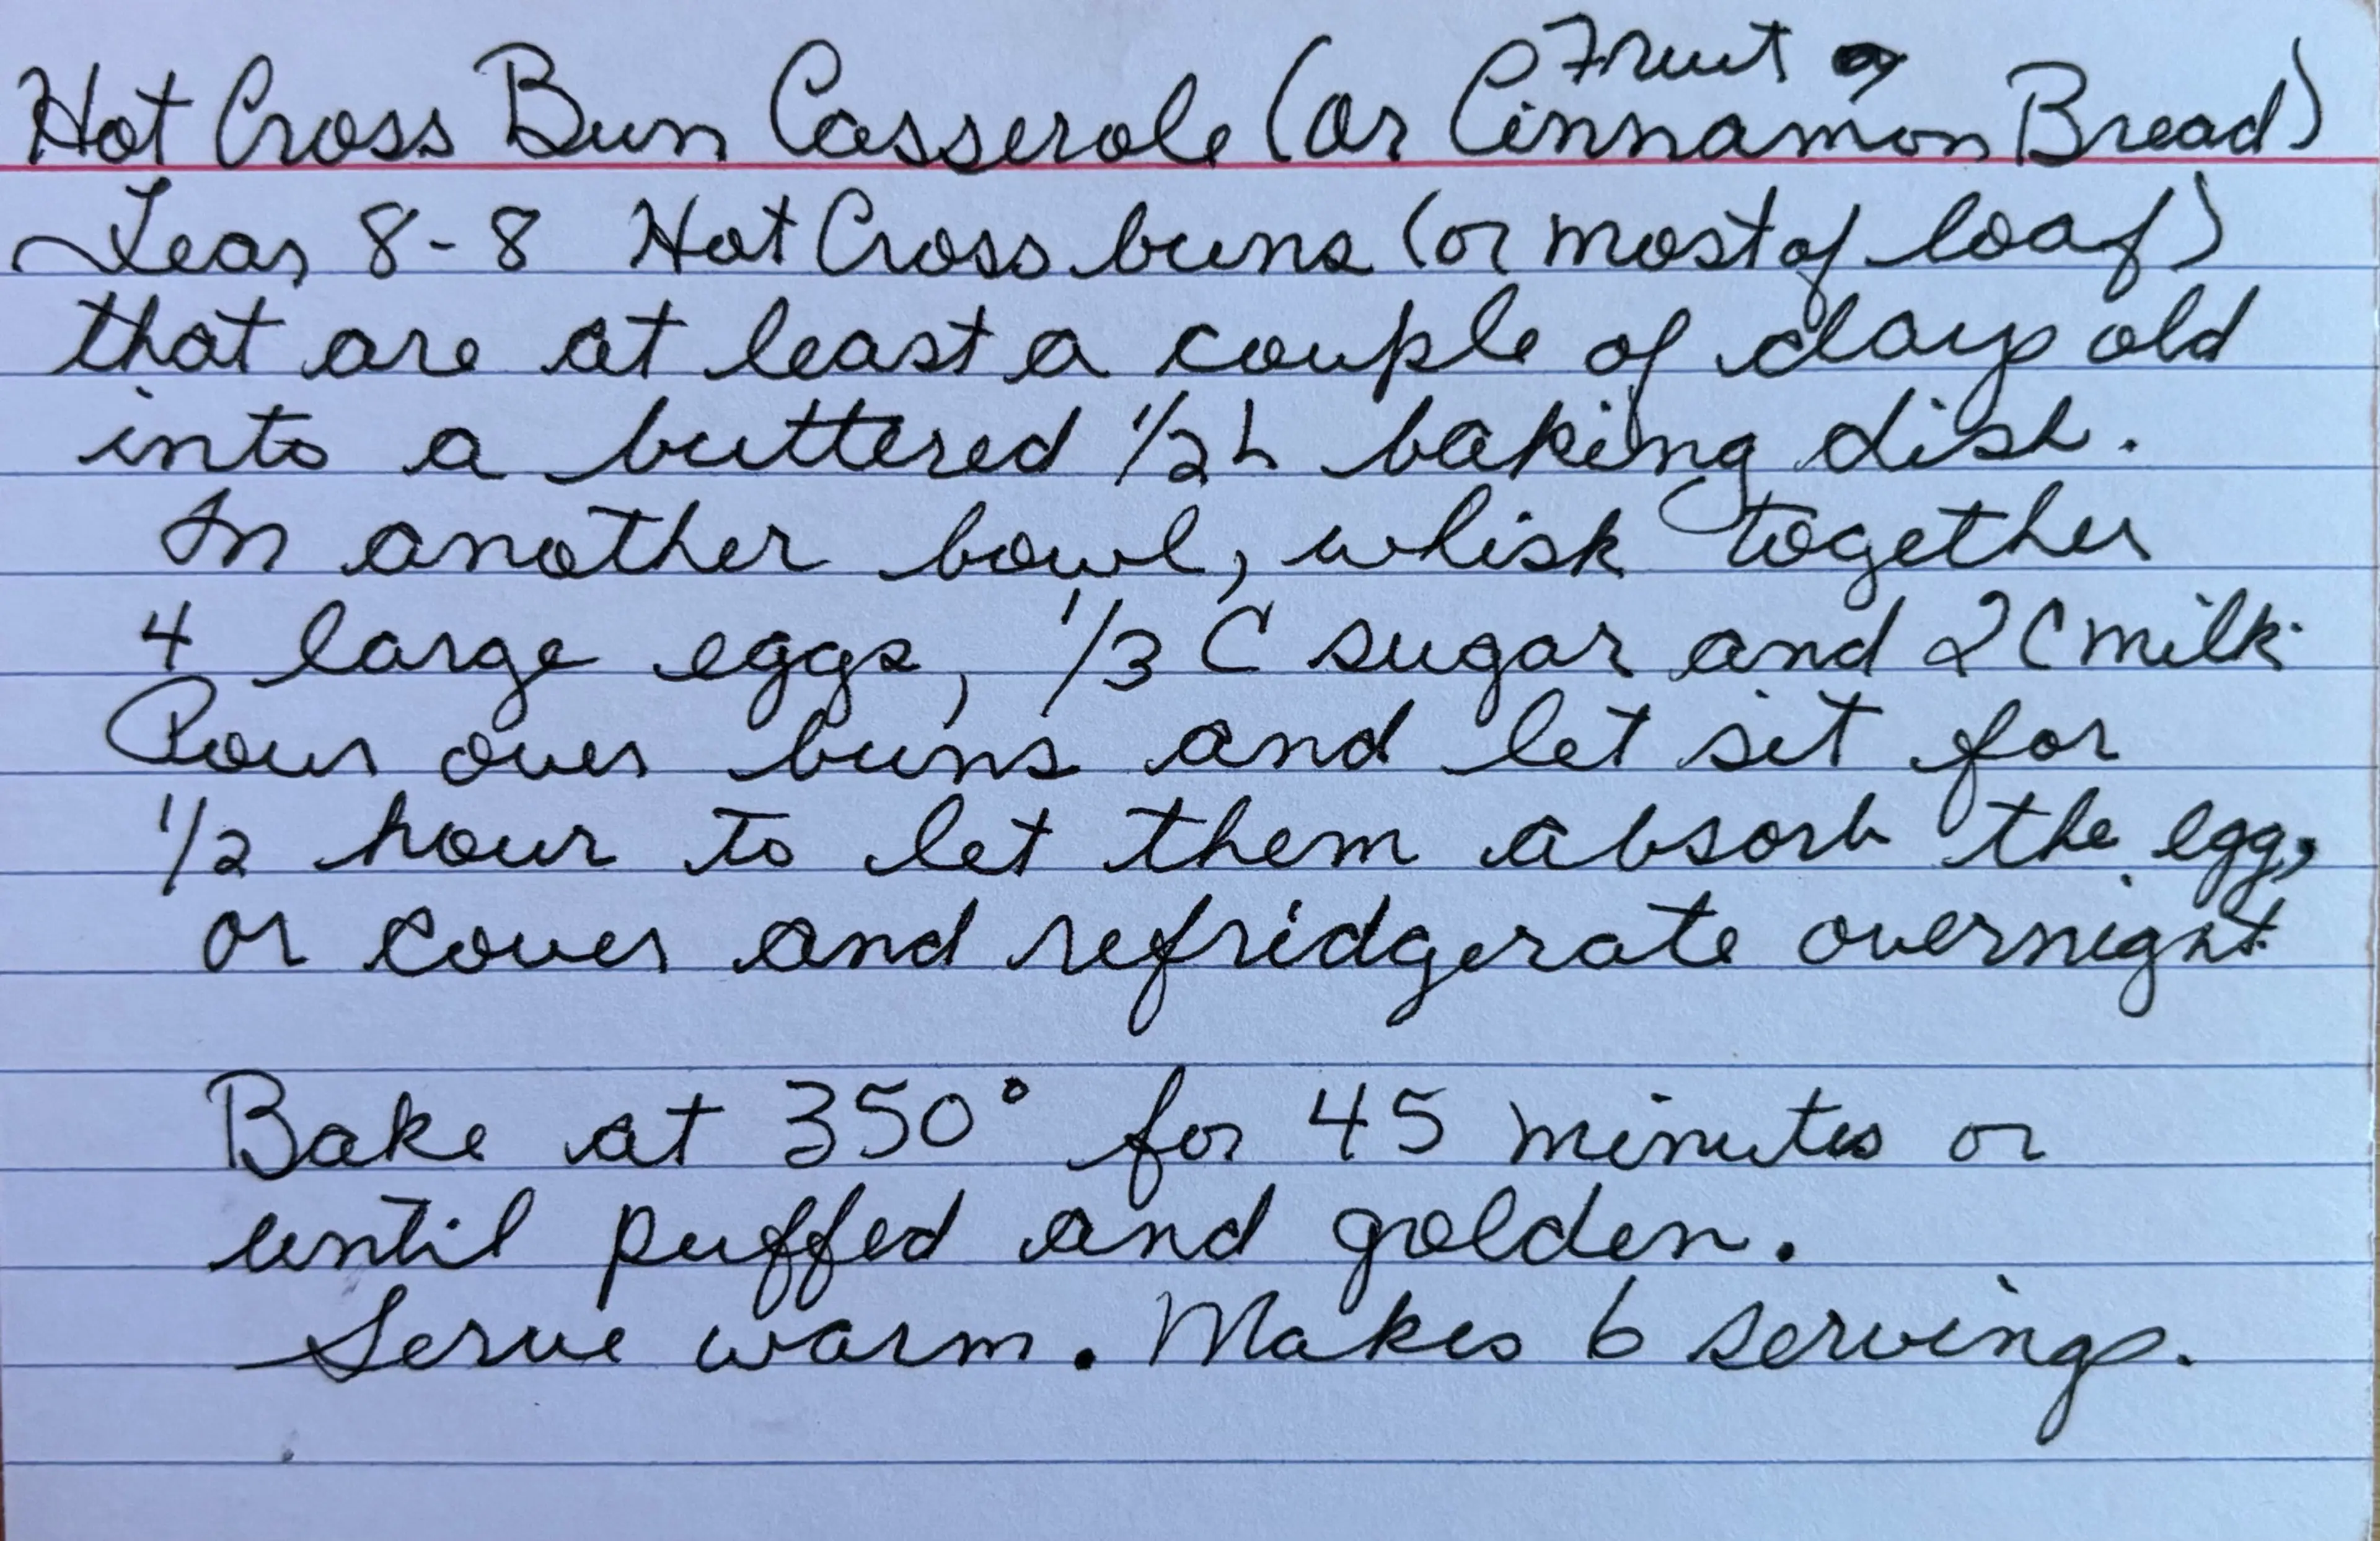 Hot Cross Bun Casserole (or Fruit or Cinnamon Bread)
Tear 8-8 Hot Cross buns (or most of loaf)
that are at least a couple of days old
into a buttered 1/2 L baking dish.
In another bowl, whisk together
4 large eggs, 1/3 C sugar and 2 C milk.
Pour over buns and let sit for
1/2 hour to let them absorb the egg,
or cover and refridgerate overnight.
Bake at 350° for 45 minutes or
until puffed and golden.
Serve warm. Makes 6 servings.